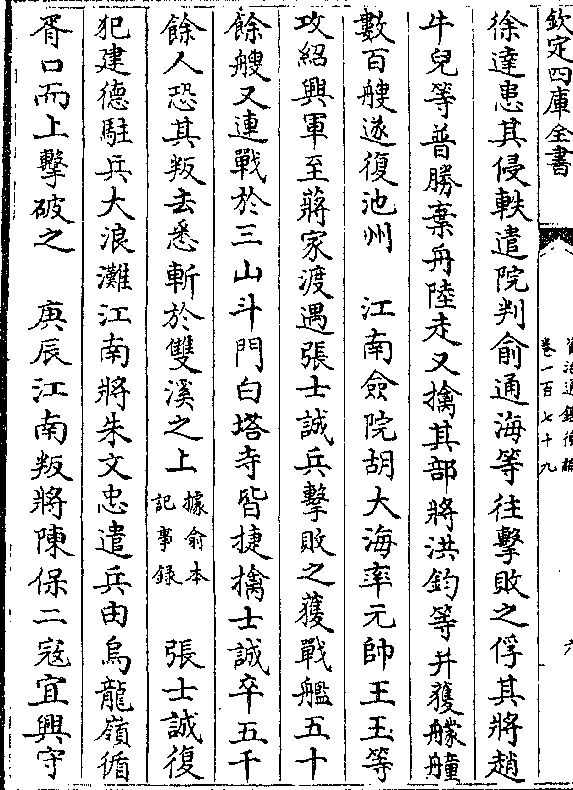 欽定四庫全書
卷一百七十九
六
徐達患其侵軼遣院判俞通海等往擊敗之俘其將趙
牛兒等普勝棄舟陸走又擒其部將洪鈞等并獲艨艟
數百艘遂復池州　江南僉院胡大海率元帥王玉等
攻紹興軍至蔣家渡遇張士誠兵擊敗之獲戰艦五十
餘艘又連戰於三山斗門白塔寺皆捷擒士誠卒五千
餘人恐其叛去悉斬於雙溪之上據俞本記事錄　張士誠復
犯建德駐兵大浪灘江南將朱文忠遣兵由烏龍嶺循
胥口而上擊破之　庚辰江南叛將陳保二寇宜興守